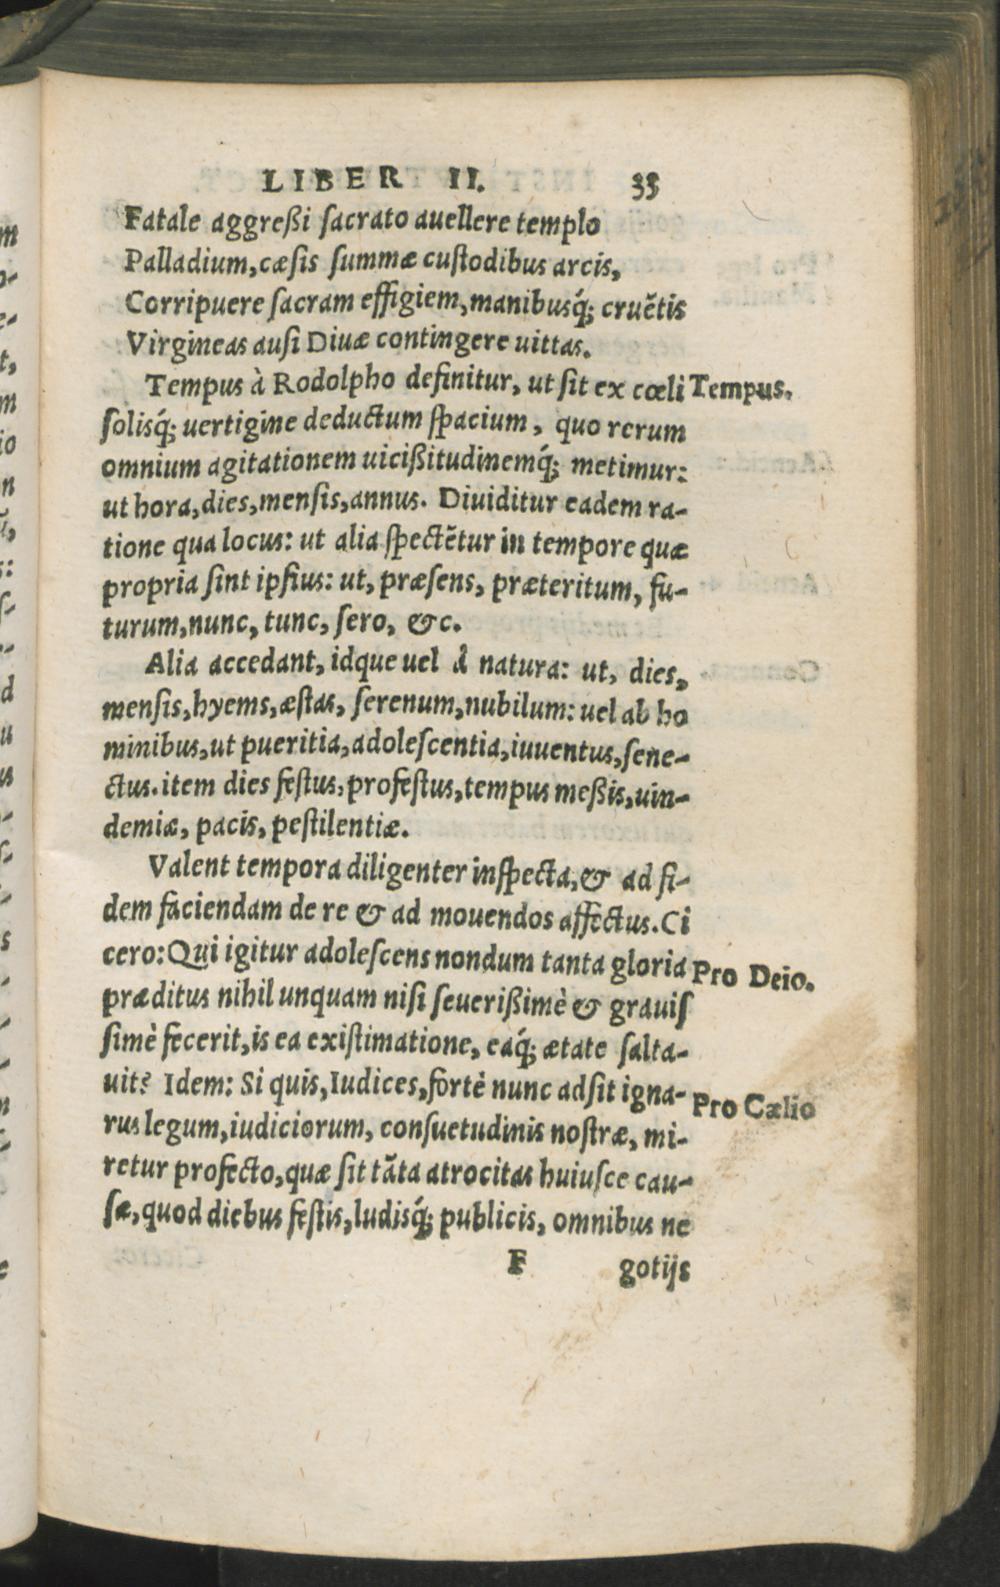 LIBER II. 33
Fatale aggreßi ſacrato auellere templo
Palladium, cæſis ſummæ cuſtodibus arcis,
Corripuere ſacram effigiem, manibusq́; cruẽtis
Virgineas auſi Diuæ contingere uittas.
Tempus à Rodolpho definitur, ut ſit ex cœli
Tempus.
ſolisq́; uertigine deductum ſpacium, quo rerum
omnium agitationem uicißitudinemq́; metimur:
ut hora, dies, menſis, annus. Diuiditur eadem ra-
tione qua locus: ut alia ſpectẽtur in tempore quæ
propria ſint ipſius: ut, præſens, præteritum, fu-
turum, nunc, tunc, ſero, &c.
Alia accedant, idque uel à natura: ut, dies,
menſis, hyems, æſtas, ſerenum, nubilum: uel ab ho
minibus, ut pueritia, adoleſcentia, iuuentus, ſene-
ctus. item dies feſtus, profeſtus, tempus meßis, uin-
demiæ, pacis, peſtilentiæ.
Valent tempora diligenter inſpecta, & ad fi-
dem faciendam de re & ad mouendos affectus. Ci
cero: Qui igitur adoleſcens nondum tanta gloria
Pro Deio.
præditus nihil unquam niſi ſeuerißimè & grauiſ
ſimè fecerit, is ea exiſtimatione, eaq́; ætate ſalta-
uit? Idem: Si quis, Iudices, fortè nunc adſit igna-
Pro Cælio
rus legum, iudiciorum, conſuetudinis noſtræ, mi-
retur profecto, quæ ſit tãta atrocitas huiuſce cau-
ſæ, quod diebus feſtis, ludisq́; publicis, omnibus ne
F gotijs